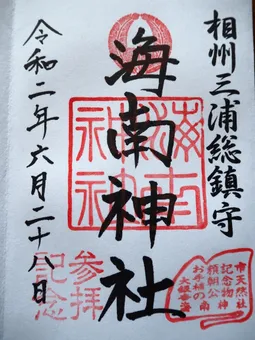 相州三浦総鎮守
海南神社
海南神社
令和二年六月二十八日
参拝
記念
市天然
記念物
頼朝公
お手植の
大銀杏
海南神社